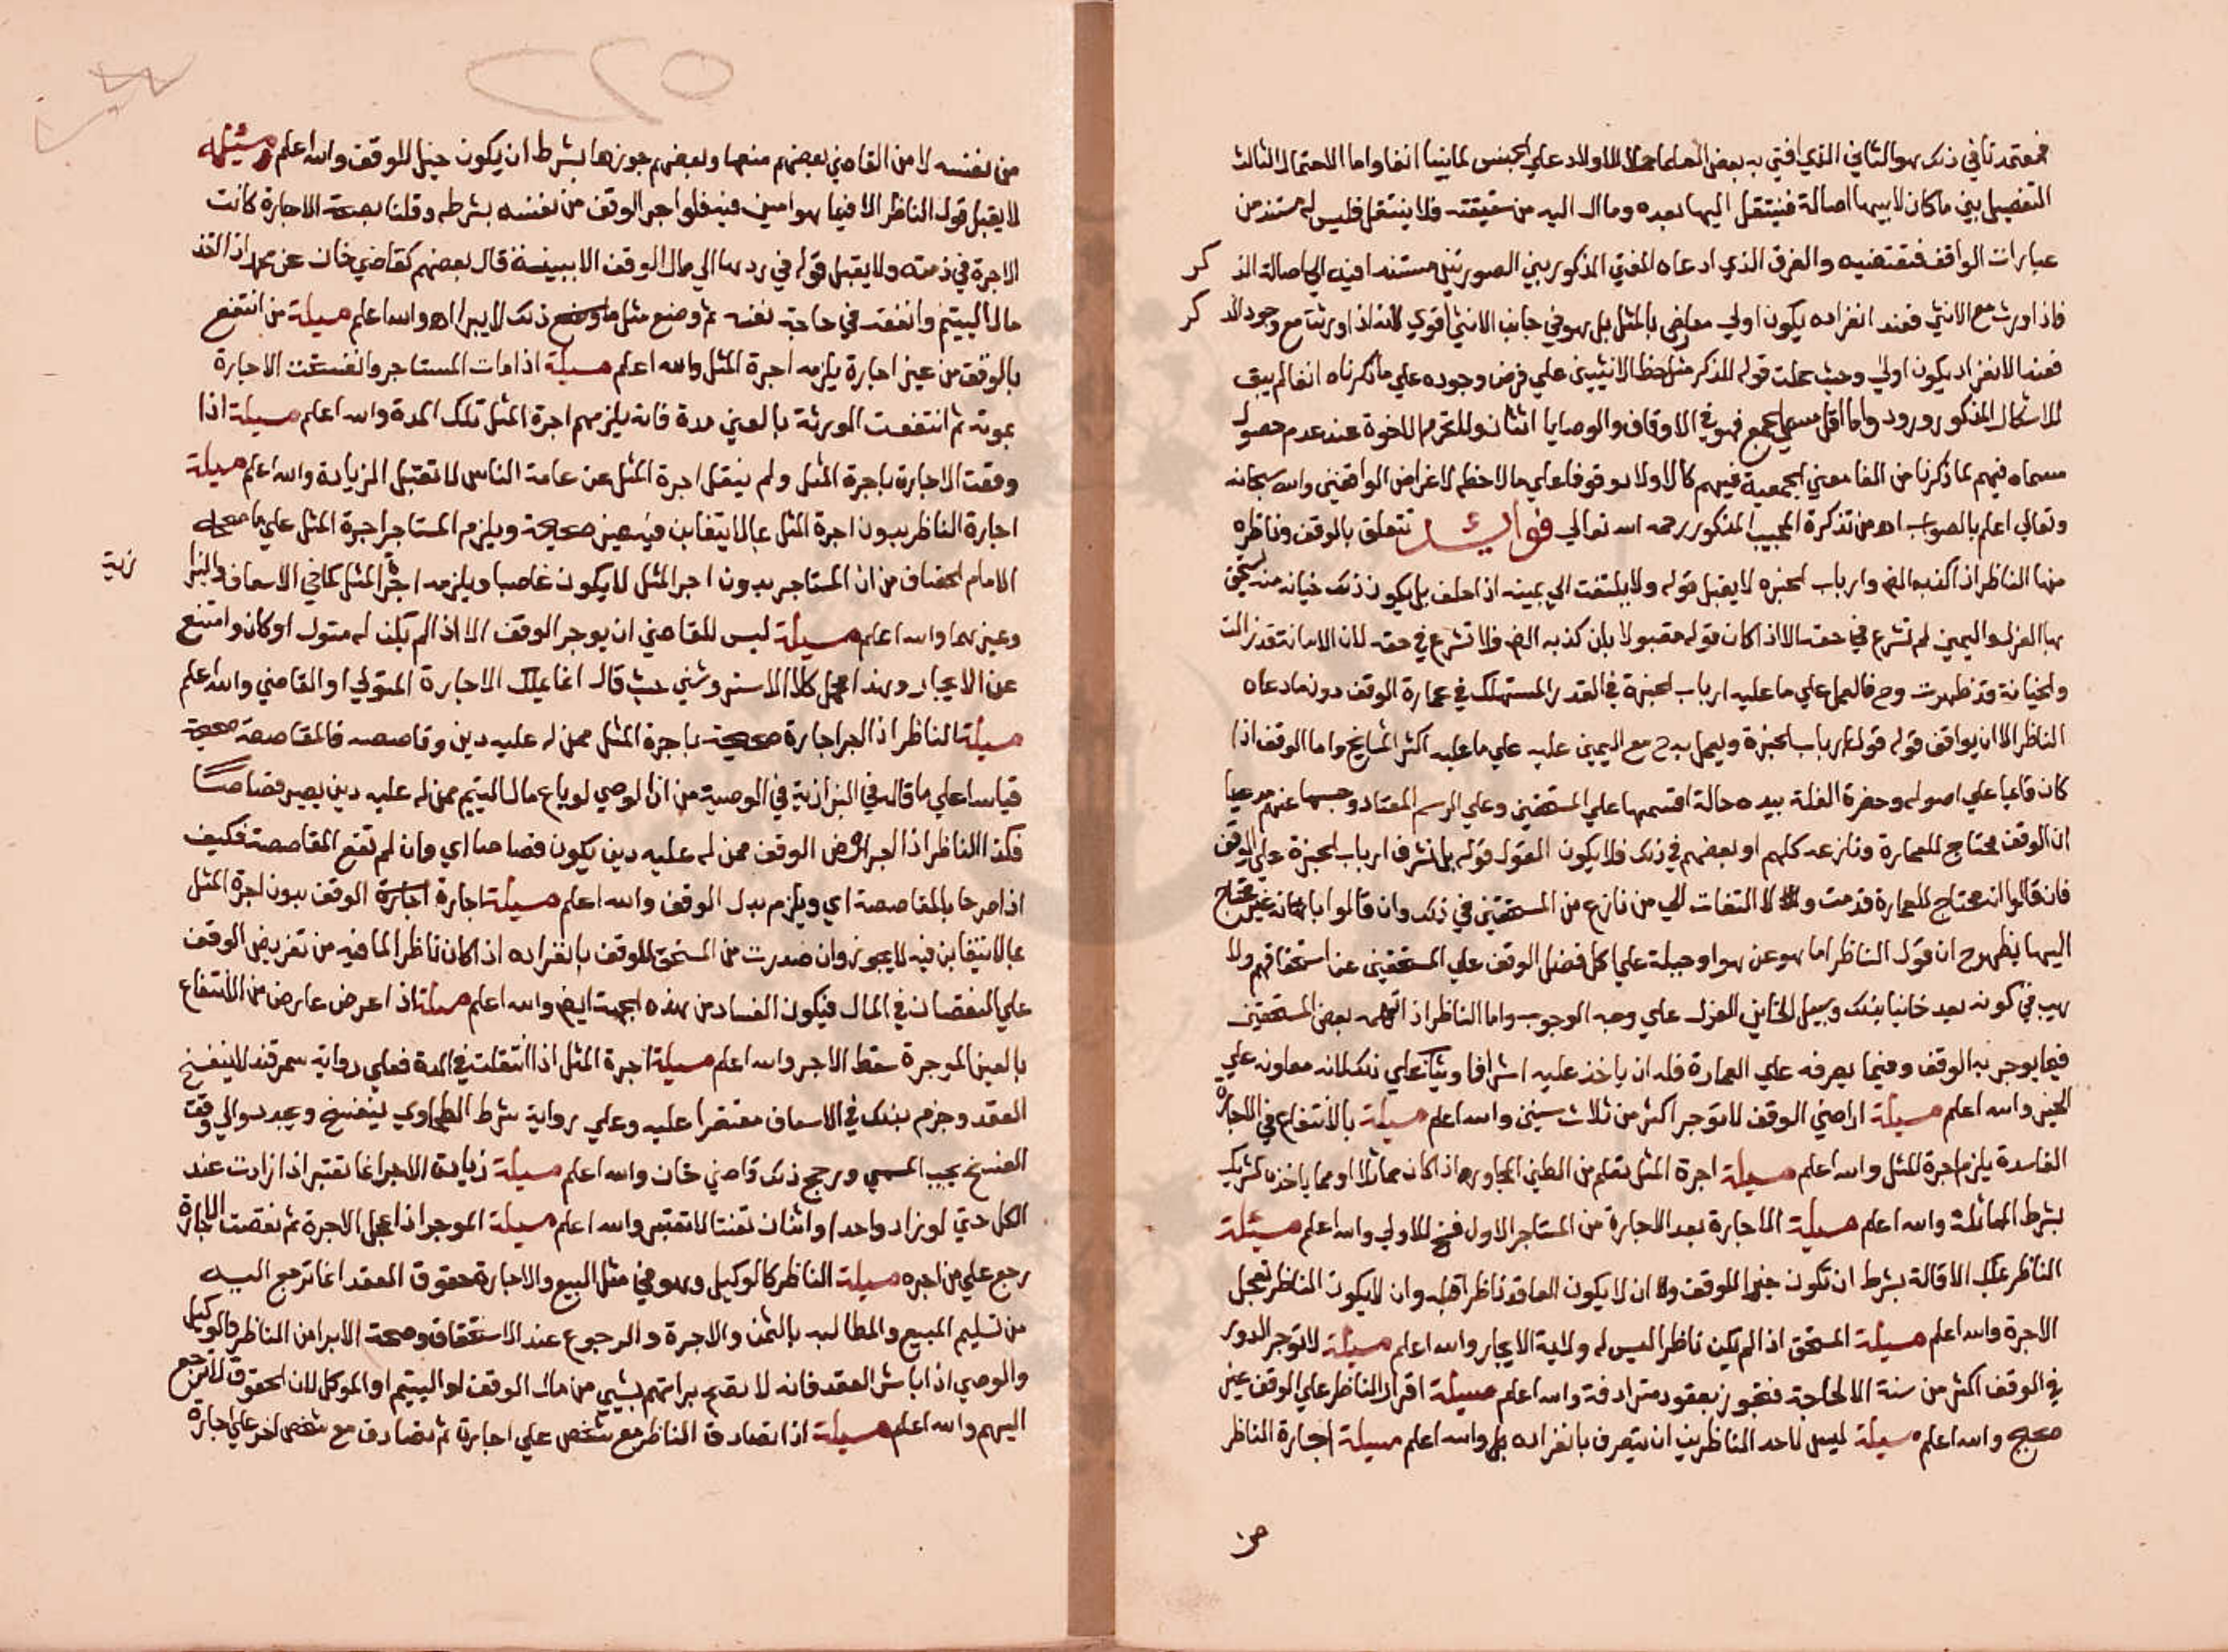 فمعتمدنا في ذلك هو الثاني الذي افتي به بعض العلماء حملا للاولاد علي الجنس لما بينا انفا واما الاحتمال الثالث
التفصيل بين ما كان لابيها اصالة فينتقل اليها بعده وما ال اليه من شقيقته فلا ينتقل فليس له مستند من
عبارات الواقف فتقتضيه والفرق الذي ادعاه المفتي المذكور بين الصورتين مستندا فيه الي اصالة الذكر
فاذا ورث مع الانثي فعند انفراده يكون اولي معارض بالمثل بل هو في جانب الانثي اقوي لانه اذا ورثت مع وجود الذكر
فعند الانفراد يكون اولي وحيث حملت قوله للذكر مثل حظ الانثيين علي فرض وجوده علي ما ذكرناه انفا لم يبق
للاشكال المذكور ورود واما اقل مسمي الجمع فهو في الاوقاف والوصايا اثنان وللتحرم للاخوة عند عدم حصول
مسماه فيهم لما ذكرنا من الغا معني الجمعية فيهم كالاولاد وقوفا علي ما لاحظه لاغراض الواقفين والله سبحانه
وتعالي اعلم بالصواب اه من تذكرة المجيب المذكور رحمه الله تعالي فوائد تتعلق بالوقف وناظره
منها الناظر اذا كذبه وارباب الخبرة لا يقبل قوله ولا يلتفت الي يمينه اذا حلف بل يكون ذلك خيانة منه يستحق
بها العزل واليمين لم تشرع في حقه الا اذا كان قوله مقبولا بان كذبه فلا تشرع في حقه لان الامانة قد زالت
والخيانة قد ظهرت وح فالعمل علي ما عليه ارباب الخبرة في القدر المستهلك في عمارة الوقف دون ما دعاه
الناظر الا ان يوافق قوله قول ارباب الخبرة وليعمل بيدح مع اليمين عليه علي ما عليه اكثر المشايخ واما الوقف اذا
كان قائما علي اصوله وحضرة الغلة بيده حالة اقتسمها علي المستحقين وعلي الرسم المعتاد وحبسها عنهم مدعيا
ان الوقف محتاج للعمارة ونازعه كلهم او بعضهم في ذلك فلا يكون القول قوله بل تشرف ارباب الخبرة علي الوقف
فان قالوا انه محتاج للعمارة قدمت ولا التفات الي من نازع من المستحقين في ذلك وان قالوا بانه غير محتاج
اليها يظهر ح ان قول الناظر اما هو عن هوا وحيلة علي اكل فضل الوقف علي المستحقين عنا استحقاقهم ولا
ريب في كونه يعد خائنا بذلك وسبيل الخائن العزل علي وجه الوجوب واما الناظر اذا اتهمه بعض المستحقين
فيما يوجر به الوقف وفيما يصرفه علي العمارة فله ان ياخذ عليه اشرافا وشيئا علي ذلك لانه معاونه علي
الخير والله اعلم مسيلة اراضي الوقف لا توجر اكثر من ثلاث سنين والله اعلم مسيلة بالانتفاع في الاجارة
الفاسدة يلزم اجرة المثل والله اعلم مسيلة اجرة المثل تعلم من الطين المجاوره اذا كان مماثلا او مما ياخذه شريك
بشرط المماثلة والله اعلم مسيلة الاجارة بعد الاجارة من المستاجر الاول فسخ للاولي والله اعلم مسئلة
الناظر يملك الاقالة بشرط ان تكون خيرا للوقف وان لا يكون العاقد ناظرا قبله وان لا يكون الناظر تعجل
الاجرة والله اعلم مسيلة المستحق اذا لم يكن ناظرا ليس له ولاية الايجار والله اعلم مسيلة لا توجر الدور
في الوقف اكثر من سنة الا لحاجة فتجوز بعقود مترادفة والله اعلم مسيلة اقرار الناظر علي الوقف غير
صحيح والله اعلم مسيلة ليس لاحد الناظرين ان يتصرف بانفراده والله اعلم مسيلة اجارة الناظر
من
٢٢٥
من نفسه لا من القاضي بعضهم منعها وبعضهم جوزها بشرط ان يكون خيرا للوقف والله اعلم مسئلة
لا يقبل قول الناظر الا فيما هو امين فيه فلو اجر الوقف من نفسه بشرطه وقلنا بصحة الاجارة كانت
الاجرة في ذمته ولا يقبل قوله في ردها الي مال الوقف الا ببينة قال بعضهم كقاضي خان عن محمد اذا اخذ
مال اليتيم وانفقه في حاجة نفسه ثم وضع مثل ما وضع ذلك لا يبرا اه والله اعلم مسيلة من انتفع
بالوقف من غير اجارة يلزمه اجرة المثل والله اعلم مسيلة اذا مات المستاجر وانفسخت الاجارة
بموته ثم انتفعت الورثة بالعين مدة فانه يلزمهم اجرة المثل تلك المدة والله اعلم مسيلة اذا
وقعت الاجارة باجرة المثل ولم ينقل اجرة المثل عن عامة الناس لا تقبل الزيادة والله اعلم مسيلة
اجارة الناظر بدون اجرة المثل بما لا يتغابن فيه غير صحيحة ويلزم المستاجر اجرة المثل علي ما صححه
الامام الخصاف من ان المستاجر بدون اجر المثل لا يكون غاصبا ويلزمه اجر المثل كما في الاسعاف والبزازية
وغيرهما والله اعلم مسيلة ليس للقاضي ان يوجر الوقف الا اذا لم يكن له متول او كان وامتنع
عن الايجار وهذا محمل كلام الاستروشني حيث قال انما يملك الاجارة المتولي او القاضي والله اعلم
مسيلة الناظر اذا اجر اجارة صحيحة باجرة المثل ممن له عليه دين وقاصصه فالمقاصصة صحيحة
قياسا علي ما قاله في البزازية في الوصية من ان الوصي لو باع مال اليتيم ممن له عليه دين يصير قصاصا
فكذا الناظر اذا اجر ارض الوقف ممن له عليه دين يكون قصاصا اي وان لم تقع المقاصصة فكيف
اذا صرحا بالمقاصصة اي ويلزم بدل الوقف والله اعلم مسيلة اجارة اجارة الوقف بدون اجرة المثل
بما لا يتغابن فيه لا يجوز وان صدرت من المستحق للوقف بانفراده اذا كان ناظرا لما فيه من تعريض الوقف
علي النقصان في المال فيكون الفساد من هذه الجهة ايضا والله اعلم مسيلة اذا عرض عارض من الانتفاع
بالعين الموجرة سقط الاجر والله اعلم مسيلة اجرة المثل اذا انتقلت في المدة فعلي رواية سمرقند لا ينفسخ
العقد وجزم بذلك في الاسعاف مقتصرا عليه وعلي رواية شرط الطحاوي ينفسخ ويجدد والي وقت
الفسخ يجب المسمي ورجح ذلك قاضي خان والله اعلم مسيلة زيادة الاجر انما تعتبر اذا زادت عند
الكل حتي لو زاد واحدا واثنان تعنتا لا تعتبر والله اعلم مسيلة الموجر اذا عجل الاجرة ثم نقضت الاجارة
رجع علي من اجره مسيلة الناظر كالوكيل وهو في مثل البيع والاجارة حقوق العقد انما ترجع اليه
من تسليم المبيع والمطالبه بالثمن والاجرة والرجوع عند الاستحقاق وصحة الابرا من الناظر والوكيل
والوصي اذا باشر العقد فانه لا تصح براتهم بشيي من مال الوقف او اليتيم او الموكل لان الحقوق لا ترجع
اليهم والله اعلم مسيلة اذا تصادق الناظر مع شخص علي اجارة ثم تصادق مع شخص اخر علي اجارة